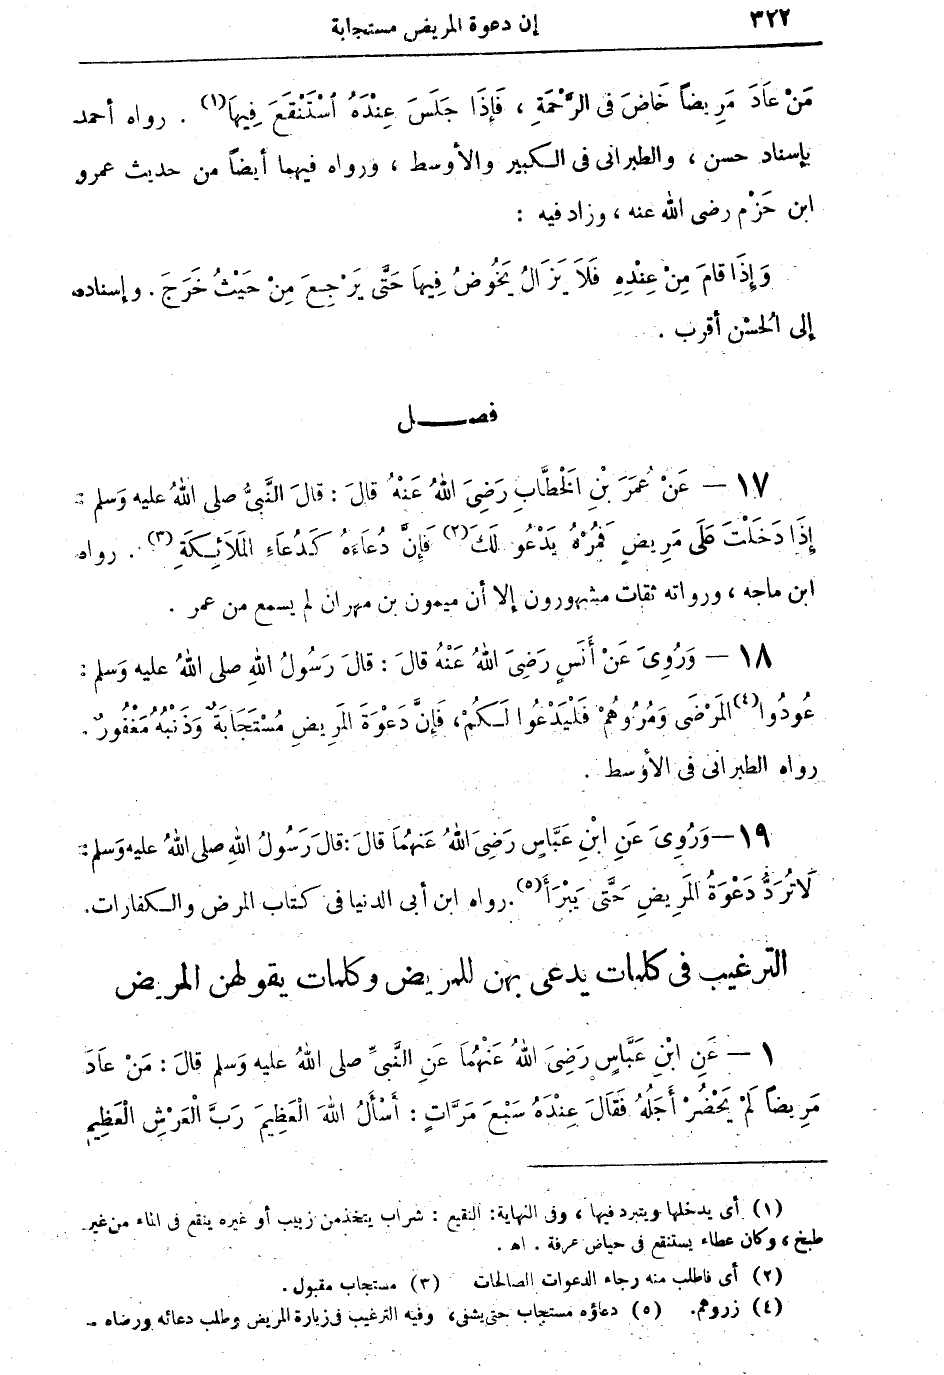 ٣٢٢
إن دعوة المريض مستجابة
مَنْ عَادَ مَرِيضاً خَاضَ فى الرَّحْمَةِ ، فَإِذَا جَلَسَ عِنْدَهُ اسْتَنْقَعَ فِيهَا(١) . رواه أحمد
بإسناد حسن ، والطبرانى فى الكبير والأوسط ، ورواه فيهما أيضاً من حديث عمرو
ابن حَزْم رضى الله عنه ، وزاد فيه :
وَإِذَا قَامَ مِنْ عِنْدِهِ فَلَا يَزَالُ يَخُوضُ فِيهَا حَتَّى يَرْجِعَ مِنْ حَيْثُ خَرَجَ . وإسناده
إلى الحسْن أقرب .
فصـــــل
١٧ – عَنْ عُمَرَ بْنِ الْخَطَّابِ رَضِىَ اللهُ عَنْهُ قَالَ : قَالَ النَّبِىُّ صلى اللهُ عليه وَسلم :
إِذَا دَخَلْتَ عَلَى مَرِيضٍ فَمُرْهُ يَدْعُو لَكَ(٢) فَإِنَّ دُعَاءَهُ كَدُعَاءِ المَلَائِكَةِ(٣) . رواه
ابن ماجه ، ورواته ثقات مشهورون إلا أن ميمون بن مهران لم يسمع من عمر .
١٨ – وَرُوِىَ عَنْ أَنَسٍ رَضِىَ اللهُ عَنْهُ قَالَ : قَالَ رَسُولُ اللهِ صلى اللهُ عليه وَسلم :
عُودُوا(٤) المَرْضَى وَمُرُوهُمْ فَلْيَدْعُوا لَكُمْ، فَإِنَّ دَعْوَةَ المَرِيضِ مُسْتَجَابَةٌ وَذَنْبُهُ مَغْفُورٌ .
رواه الطبرانى فى الأوسط .
١٩ – وَرُوِىَ عَنِ ابْنِ عَبَّاسٍ رَضِىَ اللهُ عَنْهُمَا قَالَ : قَالَ رَسُولُ اللهِ صلى اللهُ عليه وَسلم :
لَا تُرَدُّ دَعْوَةُ المَرِيضِ حَتَّى يَبْرَأَ(٥) . رواه ابن أبى الدنيا فى كتاب المرض والكفارات .
الترغيب فى كلمات يدعى بهن للمريض وكلمات يقولهن المريض
١ – عَنِ ابْنِ عَبَّاسٍ رَضِىَ اللهُ عَنْهُمَا عَنِ النَّبِىِّ صلى اللهُ عليه وَسلم قَالَ : مَنْ عَادَ
مَرِيضاً لَمْ يَحْضُرْ أَجَلُهُ فَقَالَ عِنْدَهُ سَبْعَ مَرَّاتٍ : أَسْأَلُ اللهَ الْعَظِيمَ رَبَّ الْعَرْشِ الْعَظِيمِ
(١) أى يدخلها ويتبرد فيها ، وفى النهاية : النقيع : شراب يتخذ من زبيب أو غيره ينقع فى الماء من غير
طبخ ، وكان عطاء يستنقع فى حياض عرفة . اهـ .
(٢) أى فاطلب منه رجاء الدعوات الصالحات (٣) مستجاب مقبول .
(٤) زروهم . (٥) دعاؤه مستجاب حتى يشفى ، وفيه الترغيب فى زيارة المريض وطلب دعائه ورضاه –